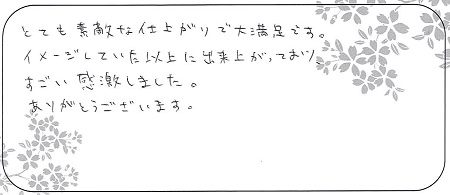 とても素敵な仕上がりで大満足です。
イメージしていた以上に出来上がっており、
すごい感激しました。
ありがとうございます。